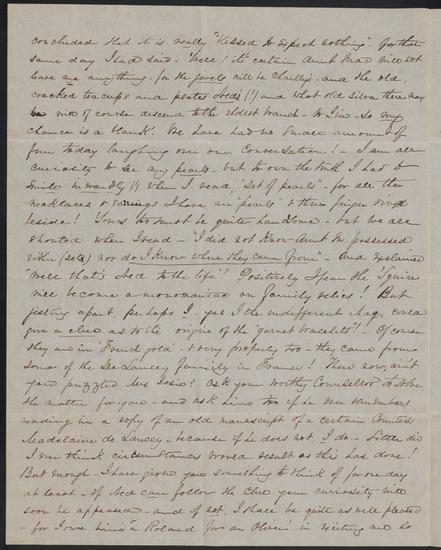 concluded that it is really "blessed to expect nothing". For that
same day I had said - "Well! it's certain Aunt Mad will not
leave me anything - for the jewels will be Charlly's - and the old
cracked teacups and plates Ned's (!) and what old silver there may
be will of course descend to the eldest branch - to Lino - so my
chance is a blank!" We have had no small amount of
fun today laughing over our Conversation! - I am all
curiosity to see my pearls - but to own the truth I had to
smile inwardly!! when I read, "Set of pearls" - for all the
necklaces & earrings I have are "pearls" & three finger rings
beside! Yours too must be quite handsome - but we all
shouted when I read - "I did not know Aunt M. possessed
either (sets) nor do I know where they came from" - And exclaimed
"Well that's Ned to the life"! Positively I fear the 'Squire
will become a monomaniac on family relics! But
jesting apart, perhaps I, yes I the indifferent hag, could
give a clue as to the origin of the "garnet bracelets"! - Of course
they are in "French gold" & very properly too - they came from
some of the De Lancey family in France! There now, ain't
you puzzled Mrs Josie? Ask your worthy Counsellor to solve
the matter for you - and ask him too if he ever remembers
reading in a copy of an old manuscript of a certain Comtess
Madelaine de Lancey - because if he does not, I do - Little did
I ever think circumstances would result as this has done!
But enough - I have given you something to think of for one day
at least - if Ned can follow the clue your curiosity will
soon be appeased - and if not, I shall be quite as well pleased
- for I owe him "a Roland for an Oliver" in writing me so